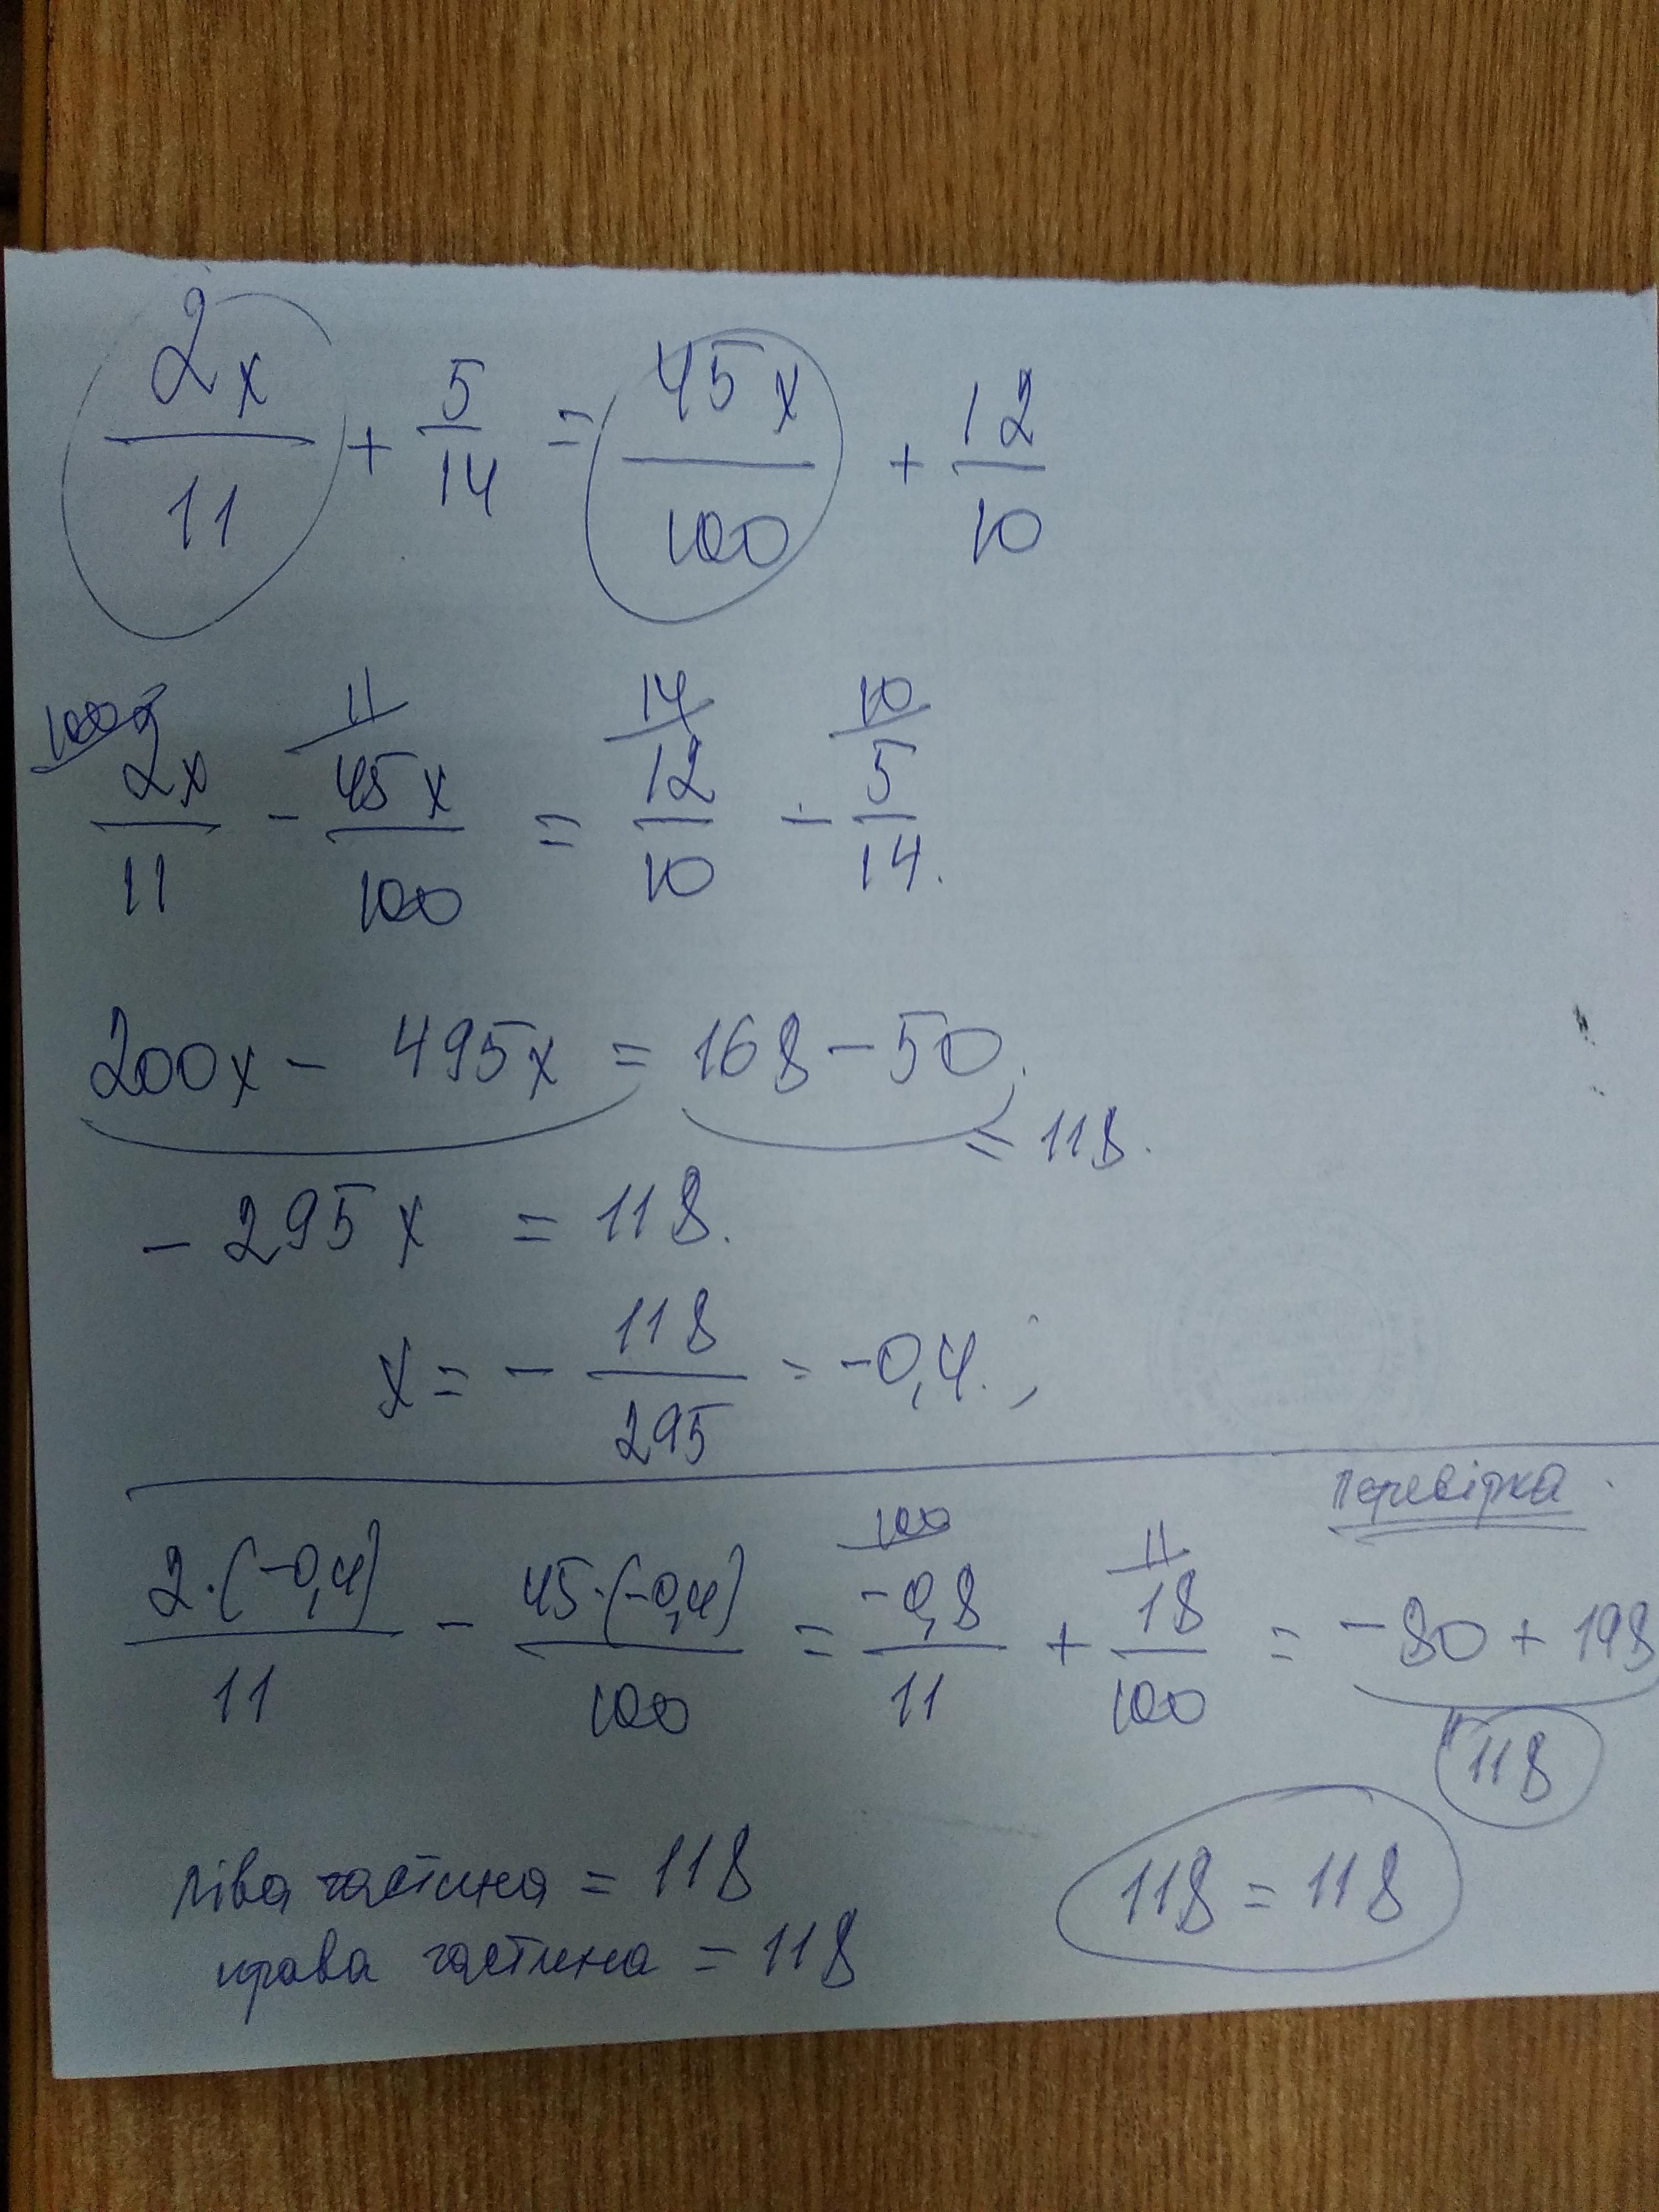 2x/11 + 5/14 = 45x/100 + 12/10
100 11 14 10
2x/11 - 45x/100 = 12/10 - 5/14.
200x - 495x = 168 - 50.
= 118.
- 295x = 118.
x = - 118/295 = -0,4. ;
Перевірка.
100 11
2·(-0,4)/11 - 45·(-0,4)/100 = -0,8/11 + 18/100 = -80 + 198
"118
ліва частина = 118
права частина = 118
118 = 118